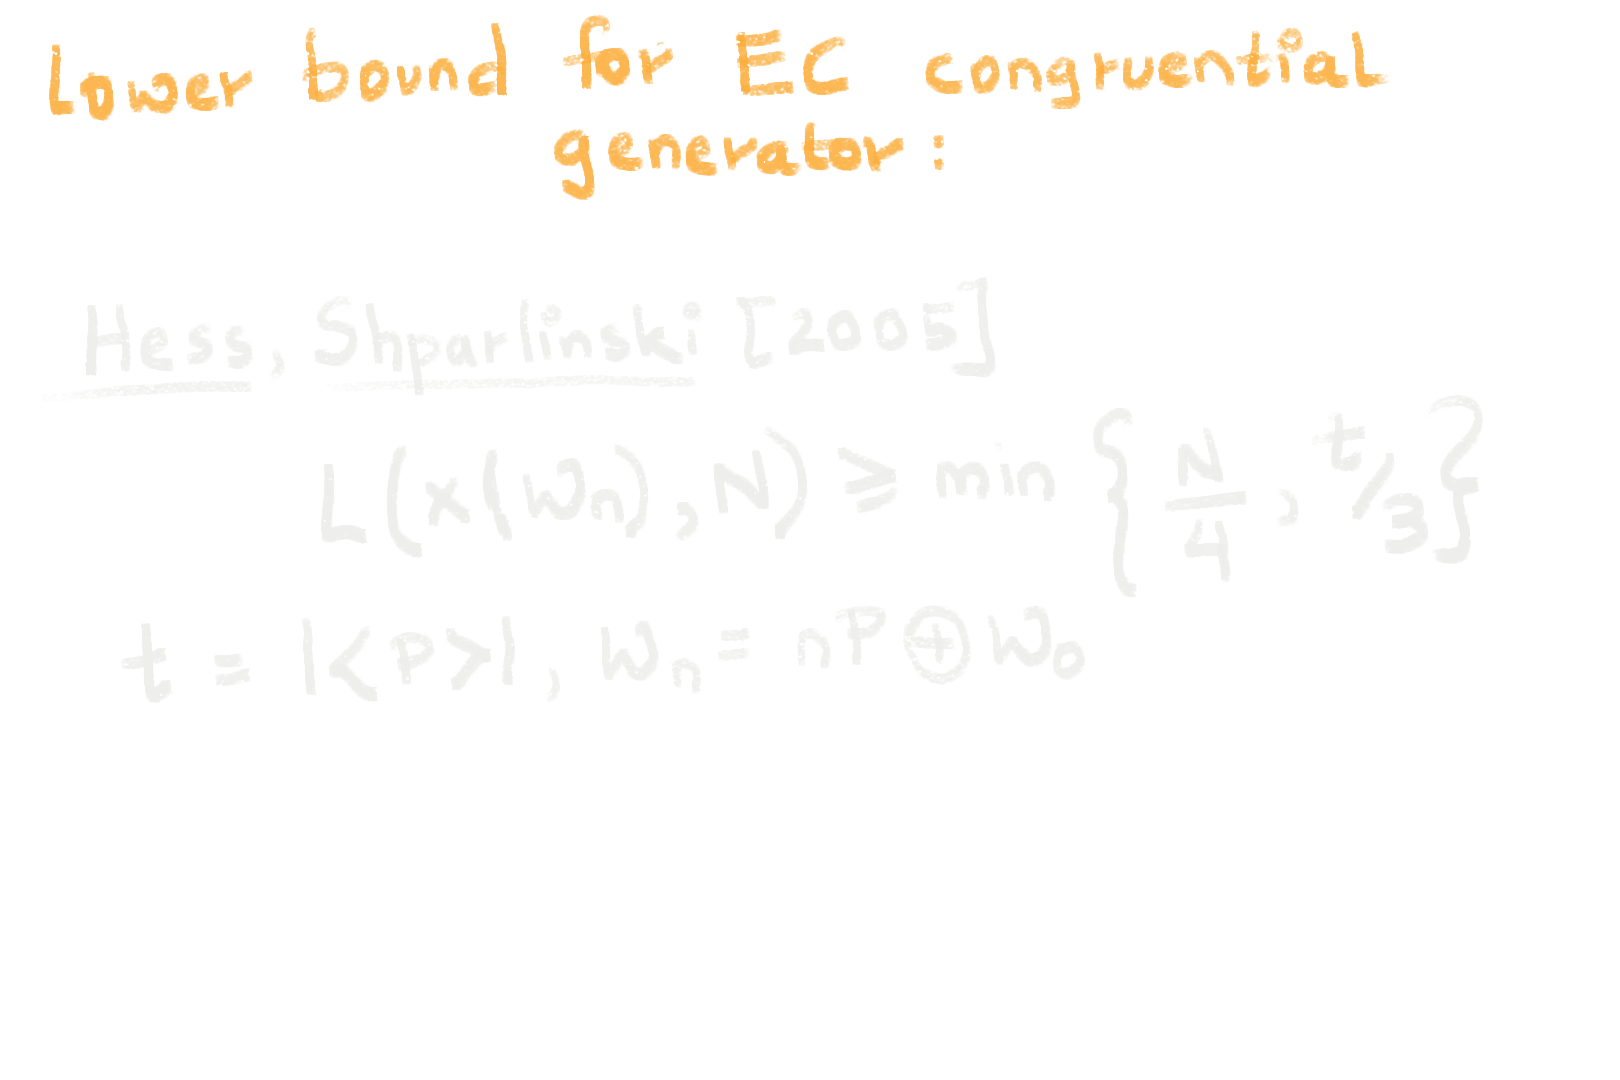 Lower bound for EC congruential
generator:
Hess, Shparlinski [2005]
L(x(Wn), N) ≥ min { N/4, t/3 }
t = |<P>|, Wn = nP ⊕ W0